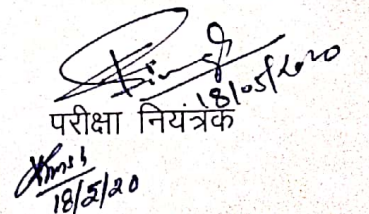 18/05/2020
परीक्षा नियंत्रक
18/5/20